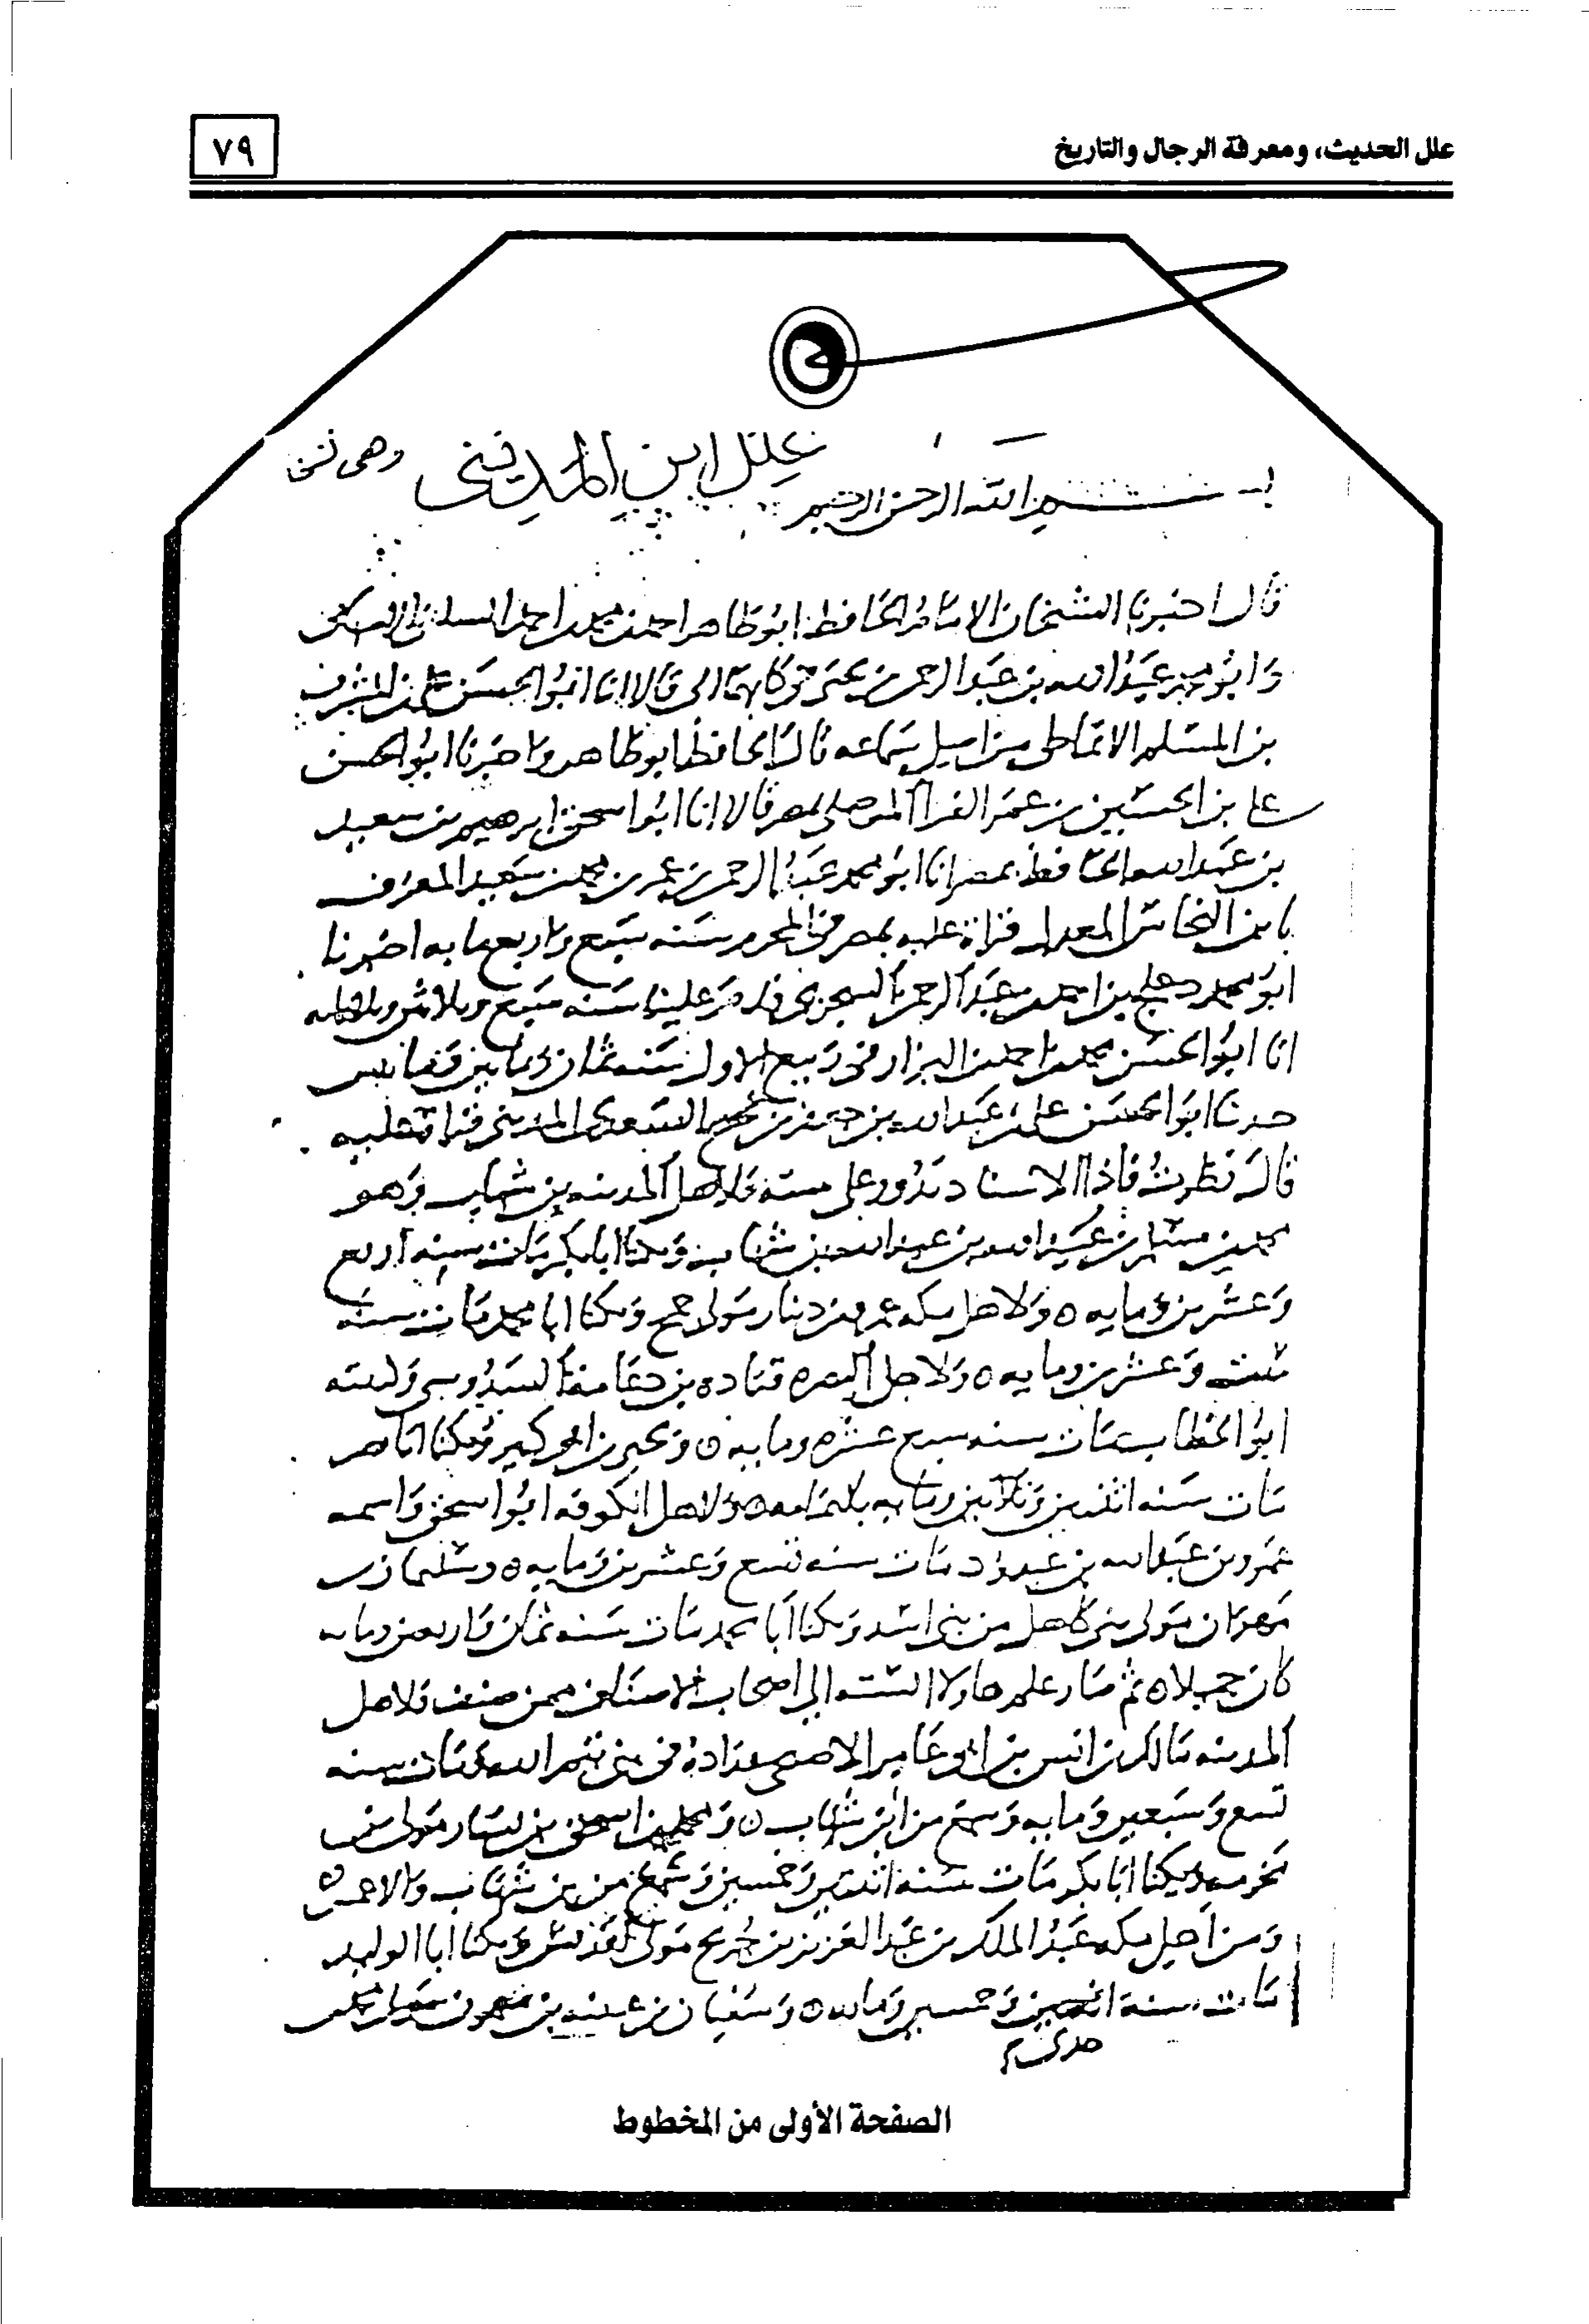 علل الحديث، ومعرفة الرجال والتاريخ
٧٩
علل ابن المديني وهي
بسم الله الرحمن الرحيم
قال اخبرنا الشيخان الامام الحافظ ابو طاهر احمد بن محمد بن احمد السلفي
وابو محمد عبد الله بن عبد الرحمن بن يحيى قالا انا ابو الحسن علي بن المشرف
بن المسلم الانماطي من اصل سماعه قال الحافظ ابو طاهر واخبرنا ابو الحسن
علي بن الحسين بن عمر الفرا الموصلي بمصر قالا انا ابو اسحق ابرهيم بن سعيد
بن عبد الله الحافظ بمصر انا ابو محمد عبد الرحمن بن عمر بن محمد بن سعيد المعروف
بابن النحاس المعدل قراة عليه بمصر في المحرم سنه سبع واربع مايه اخبرنا
ابو محمد دعلج بن احمد بن عبد الرحمن السجزي قدم علينا سنه سبع وثلاثين وثلثمايه
انا ابو الحسن محمد بن احمد بن البرا في ربيع الاول سنه ثمان وثمانين
حدثنا ابو الحسن علي بن عبد الله بن جعفر بن نجيح السعدي المديني قراة عليه
قال نظرت فاذا الاسناد تدور على ستة فلاهل المدينه بن شهاب وهو
محمد بن مسلم بن عبيد الله بن عبد الله بن شهاب ويكنا ابا بكر مات سنه اربع
وعشرين ومايه ٥ ولاهل مكه عمرو بن دينار مولى جمح ويكنا ابا محمد مات سنه
ست وعشرين ومايه ٥ ولاهل البصره قتاده بن دعامة السدوسي وكنيته
ابو الخطاب مات سنه سبع عشره ومايه ٥ ويحيى بن ابي كثير ويكنا ابا نصر
مات سنه اثنين وثلاثين ومايه باليمامه ٥ ولاهل الكوفه ابو اسحق واسمه
عمرو بن عبد الله بن عبيد مات سنه تسع وعشرين ومايه ٥ وسليمان بن
مهران مولى بني كاهل من بني اسد ويكنا ابا محمد مات سنه ثمان واربعين ومايه
كان جميلا ٥ ثم صار علم هاولا الستة الى اصحاب الاصناف ممن صنف فلاهل
المدينه مالك بن انس بن ابي عامر الاصبحي عداده في بني تيم الله مات سنه
تسع وسبعين ومايه وسمع من ابن شهاب ٥ ومحمد بن اسحق بن يسار مولى بني
مخرمه ويكنا ابا بكر مات سنه اثنتين وخمسين وسمع من بن شهاب والاعمش ٥
ومن اهل مكه عبد الملك بن عبد العزيز بن جريج مولى لقريش ويكنا ابا الوليد
مات سنة احدى وخمسين ومايه ٥ وسفيان بن عيينه بن ميمون مولى محمد
الصفحة الأولى من المخطوط